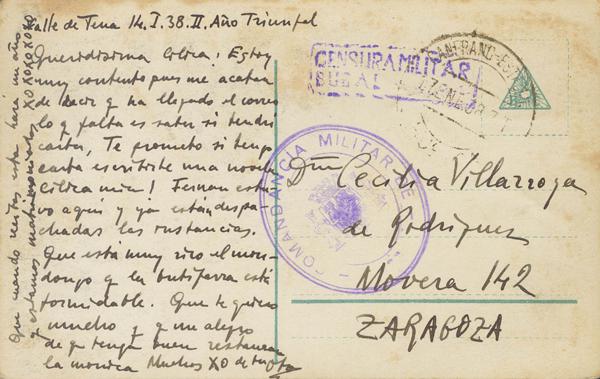 Valle de Tena 14.I.38.II. Año Triunfal
Queridísima Cilica: Estoy
muy contento pues me acaban
de decir q ha llegado el correo
lo q falta es saber si tendré
carta, Te prometo si tengo
carta escribirte una
Cilica mia! Fernan estu
vo aquí y ya están despa
chadas las instancias.
Que está muy rico el mon-
dongo y la butifarra está
formidable. Que te quiero
mucho y q me alegro
de q tenga buen
la monica Muchos XO de tu
Que cuando recibas esta hará un año
q estamos XOXOXOXO
CENSURA MILITAR
CANFRANC-ES
17 ENE 38
COMANDANCIA MILITAR DE
Dña Cecilia Villarroya
de Rodríguez
Movera 142
ZARAGOZA